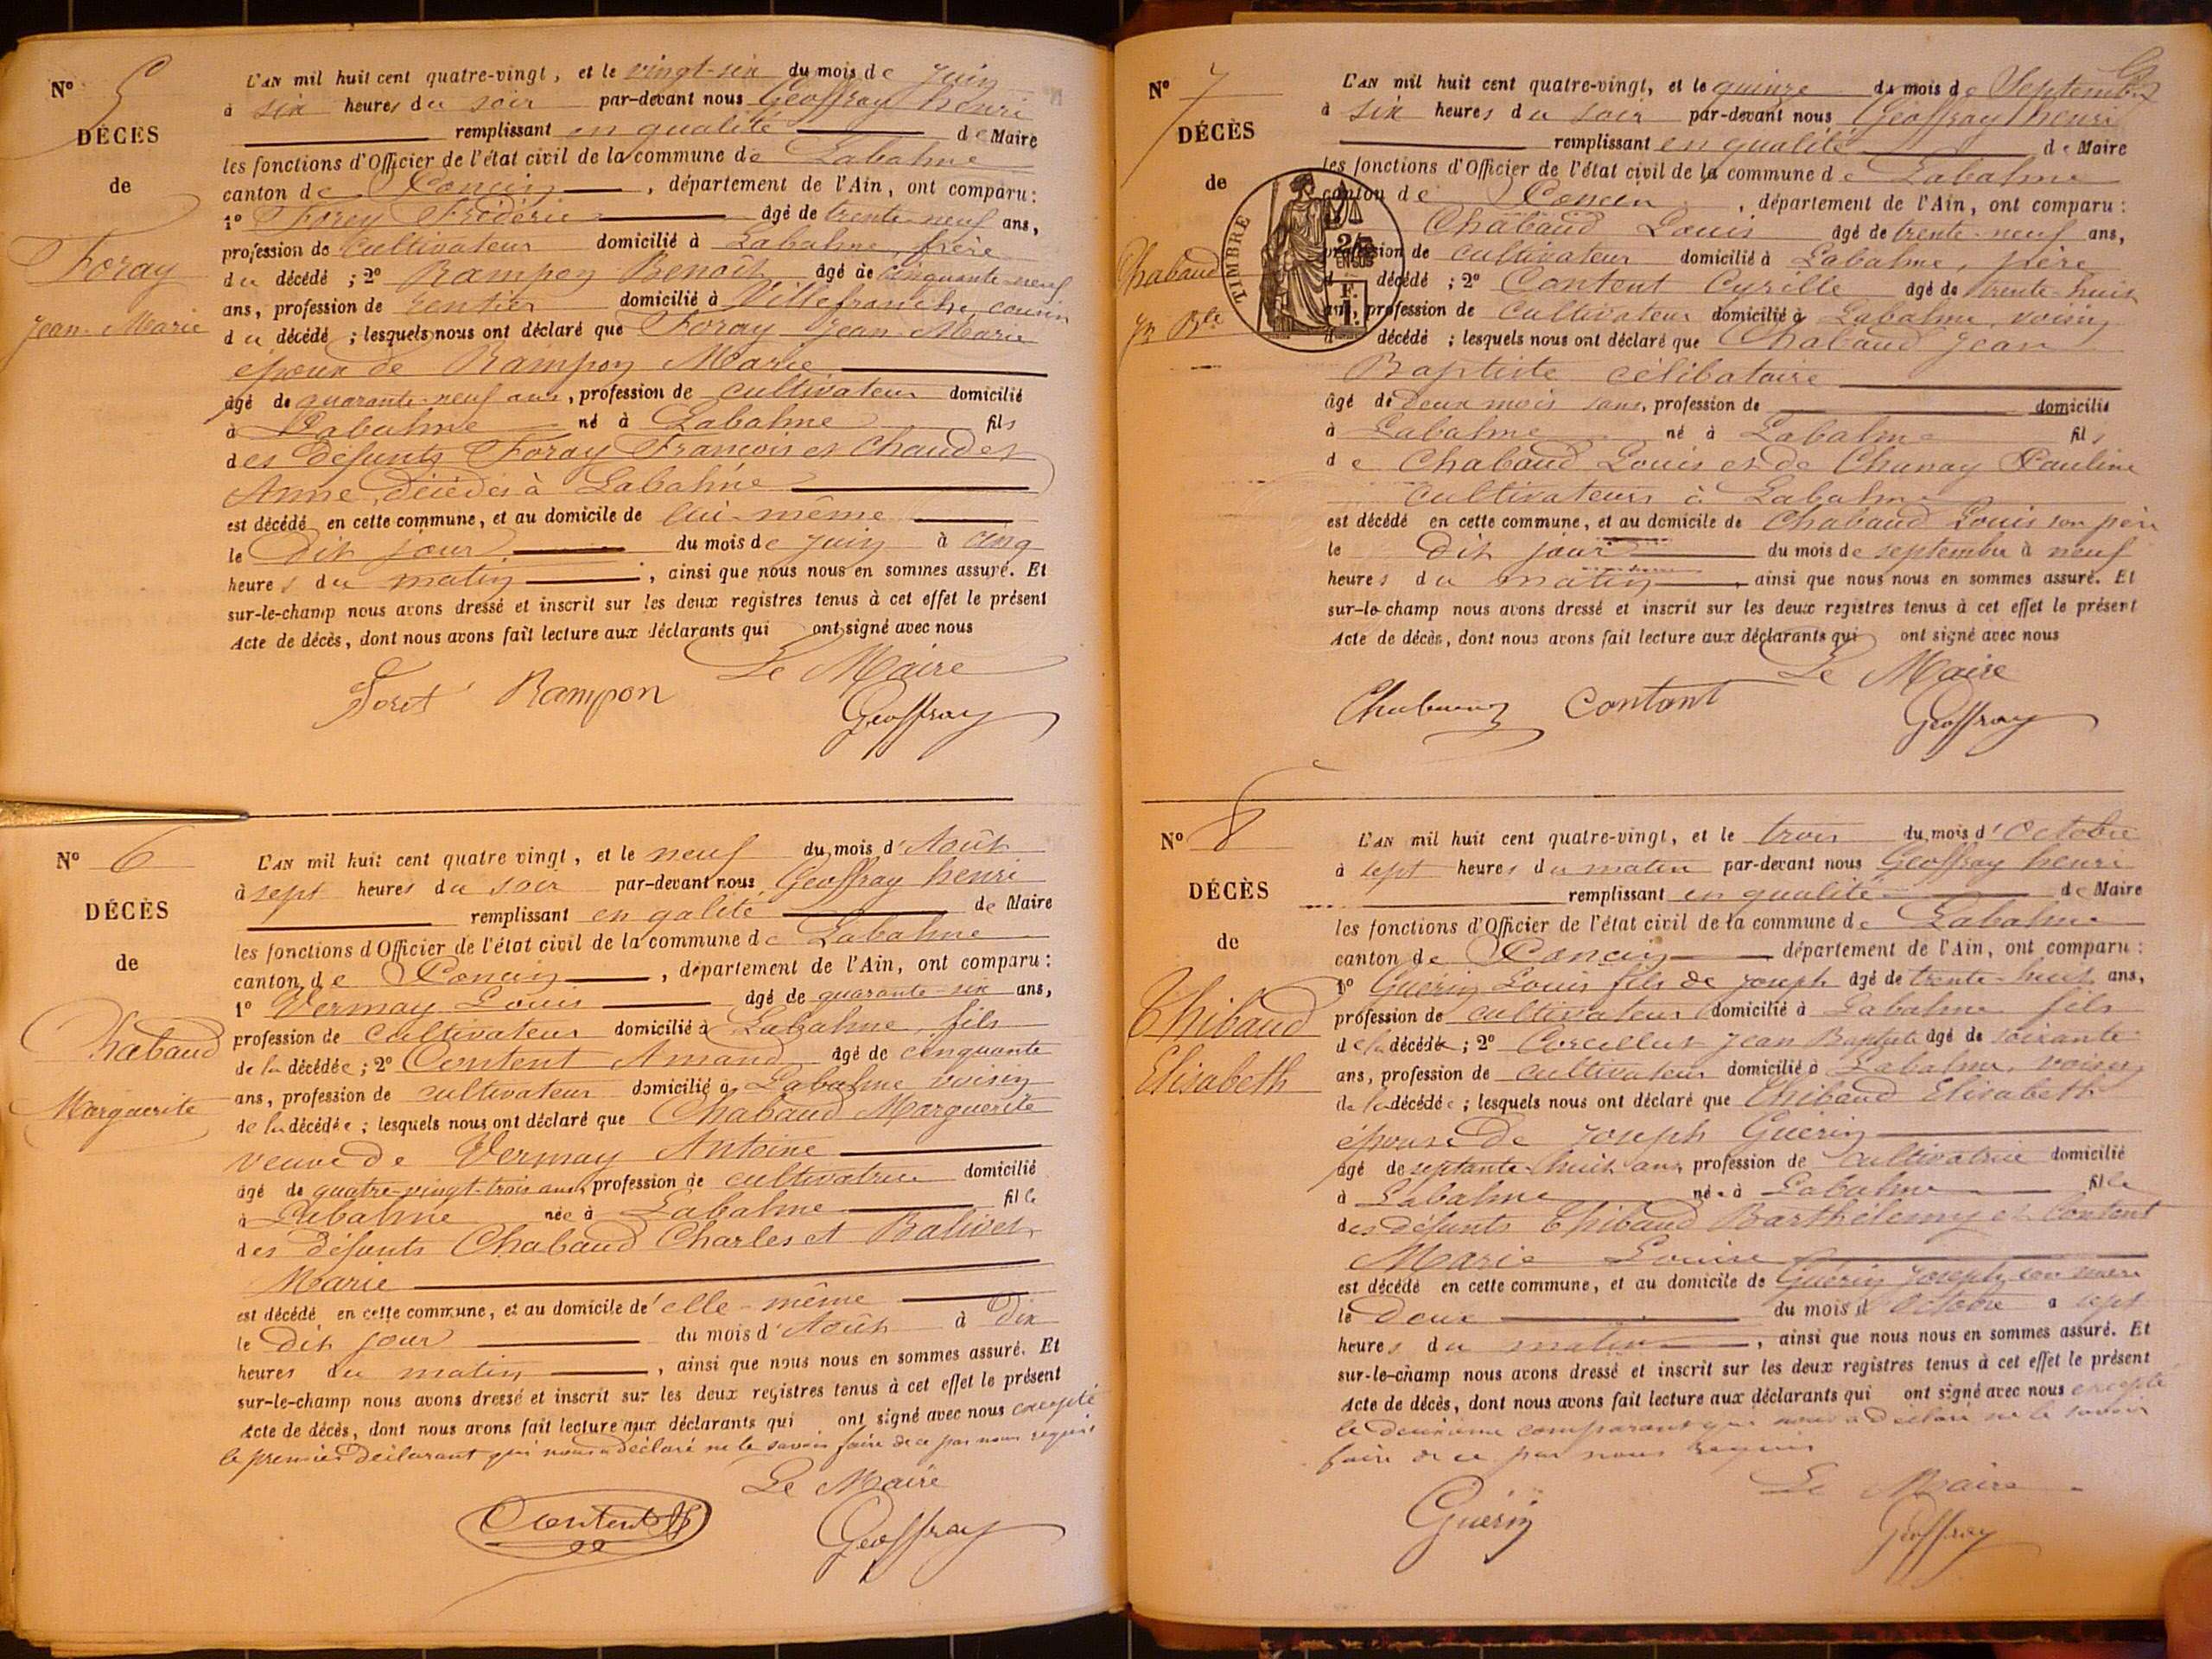 N° 5
DÉCÈS
de
Foray
Jean-Marie
L'AN mil huit cent quatre-vingt, et le vingt-six du mois de Juin
à six heures du soir par-devant nous Geoffray henri
remplissant en qualité de Maire
les fonctions d'Officier de l'état civil de la commune de Labalme
canton de Poncin, département de l'Ain, ont comparu :
1° Forey Frédéric âgé de trente-neuf ans,
profession de cultivateur domicilié à Labalme, frère
du décédé ; 2° Rampon Benoît âgé de cinquante-neuf
ans, profession de rentier domicilié à Villefranche, cousin
du décédé ; lesquels nous ont déclaré que Foray Jean-Marie
époux de Rampon Marie
âgé de quarante-neuf ans, profession de cultivateur domicilié
à Labalme né à Labalme fils
des défunts Foray François et Chaudet
Anne, décédés à Labalme
est décédé en cette commune, et au domicile de lui-même
le dit jour du mois de juin à cinq
heures du matin, ainsi que nous nous en sommes assuré. Et
sur-le-champ nous avons dressé et inscrit sur les deux registres tenus à cet effet le présent
Acte de décès, dont nous avons fait lecture aux déclarants qui ont signé avec nous
Le Maire
Foret Rampon
Geoffray
N° 6
DÉCÈS
de
Chabaud
Marguerite
L'AN mil huit cent quatre vingt, et le neuf du mois d'Août
à sept heures du soir par-devant nous Geoffray henri
remplissant en galité de Maire
les fonctions d'Officier de l'état civil de la commune de Labalme
canton de Poncin, département de l'Ain, ont comparu :
1° Vermay Louis âgé de quarante-six ans,
profession de cultivateur domicilié à Labalme, fils
de la décédée ; 2° Content Amand âgé de cinquante
ans, profession de cultivateur domicilié à Labalme voisin
de la décédée ; lesquels nous ont déclaré que Chabaud Marguerite
veuve de Vermay Antoine
âgé de quatre-vingt-trois ans, profession de cultivatrice domicilié
à Labalme née à Labalme fille
des défunts Chabaud Charles et Balivet
Marie
est décédé en cette commune, et au domicile d'elle-même
le dit jour du mois d'Août à dix
heures du matin, ainsi que nous nous en sommes assuré. Et
sur-le-champ nous avons dressé et inscrit sur les deux registres tenus à cet effet le présent
Acte de décès, dont nous avons fait lecture aux déclarants qui ont signé avec nous excepté
le premier déclarant qui nous a déclaré ne le savoir faire de ce par nous requis
Le Maire
Content
Geoffray
N° 7
DÉCÈS
de
Chabaud
Jn Bte
TIMBRE
L'AN mil huit cent quatre-vingt, et le quinze du mois de Septembre
à six heures du soir par-devant nous Geoffray henri
remplissant en qualité de Maire
les fonctions d'Officier de l'état civil de la commune de Labalme
canton de Poncin, département de l'Ain, ont comparu :
Chabaud Louis âgé de trente-neuf ans,
profession de cultivateur domicilié à Labalme, père
décédé ; 2° Content Cyrille âgé de trente-huit
ans, profession de cultivateur domicilié à Labalme, voisin
décédé ; lesquels nous ont déclaré que Chabaud Jean
Baptiste célibataire
âgé de deux mois sans, profession de domicilié
à Labalme né à Labalme fils
de Chabaud Louis et de Chanay Pauline
cultivateurs à Labalme
est décédé en cette commune, et au domicile de Chabaud Louis son père
le dit jour du mois de septembre à neuf
heures du matin, ainsi que nous nous en sommes assuré. Et
sur-le-champ nous avons dressé et inscrit sur les deux registres tenus à cet effet le présent
Acte de décès, dont nous avons fait lecture aux déclarants qui ont signé avec nous
Le Maire
Contant
Geoffray
N° 8
DÉCÈS
de
Thibaud
Elisabeth
L'AN mil huit cent quatre-vingt, et le trois du mois d'Octobre
à sept heures du matin par-devant nous Geoffray henri
remplissant en qualité de Maire
les fonctions d'Officier de l'état civil de la commune de Labalme
canton de Poncin département de l'Ain, ont comparu :
1° Guérin Louis fils de Joseph âgé de trente-huit ans,
profession de cultivateur domicilié à Labalme fils
de la décédée ; 2° Corcellut Jean Baptiste âgé de soixante
ans, profession de cultivateur domicilié à Labalme, voisin
de la décédée ; lesquels nous ont déclaré que Thibaud Elisabeth
épouse de Joseph Guérin
âgé de septante-huit ans, profession de cultivatrice domicilié
à Labalme née à Labalme fille
des défunts Thibaud Barthélemy et Content
Marie Louise
est décédé en cette commune, et au domicile de Guérin Joseph son mari
le deux du mois d'Octobre à sept
heures du matin, ainsi que nous nous en sommes assuré. Et
sur-le-champ nous avons dressé et inscrit sur les deux registres tenus à cet effet le présent
Acte de décès, dont nous avons fait lecture aux déclarants qui ont signé avec nous excepté
le deuxième comparant qui nous a déclaré ne le savoir
faire de ce par nous requis
Le Maire
Guérin
Geoffray